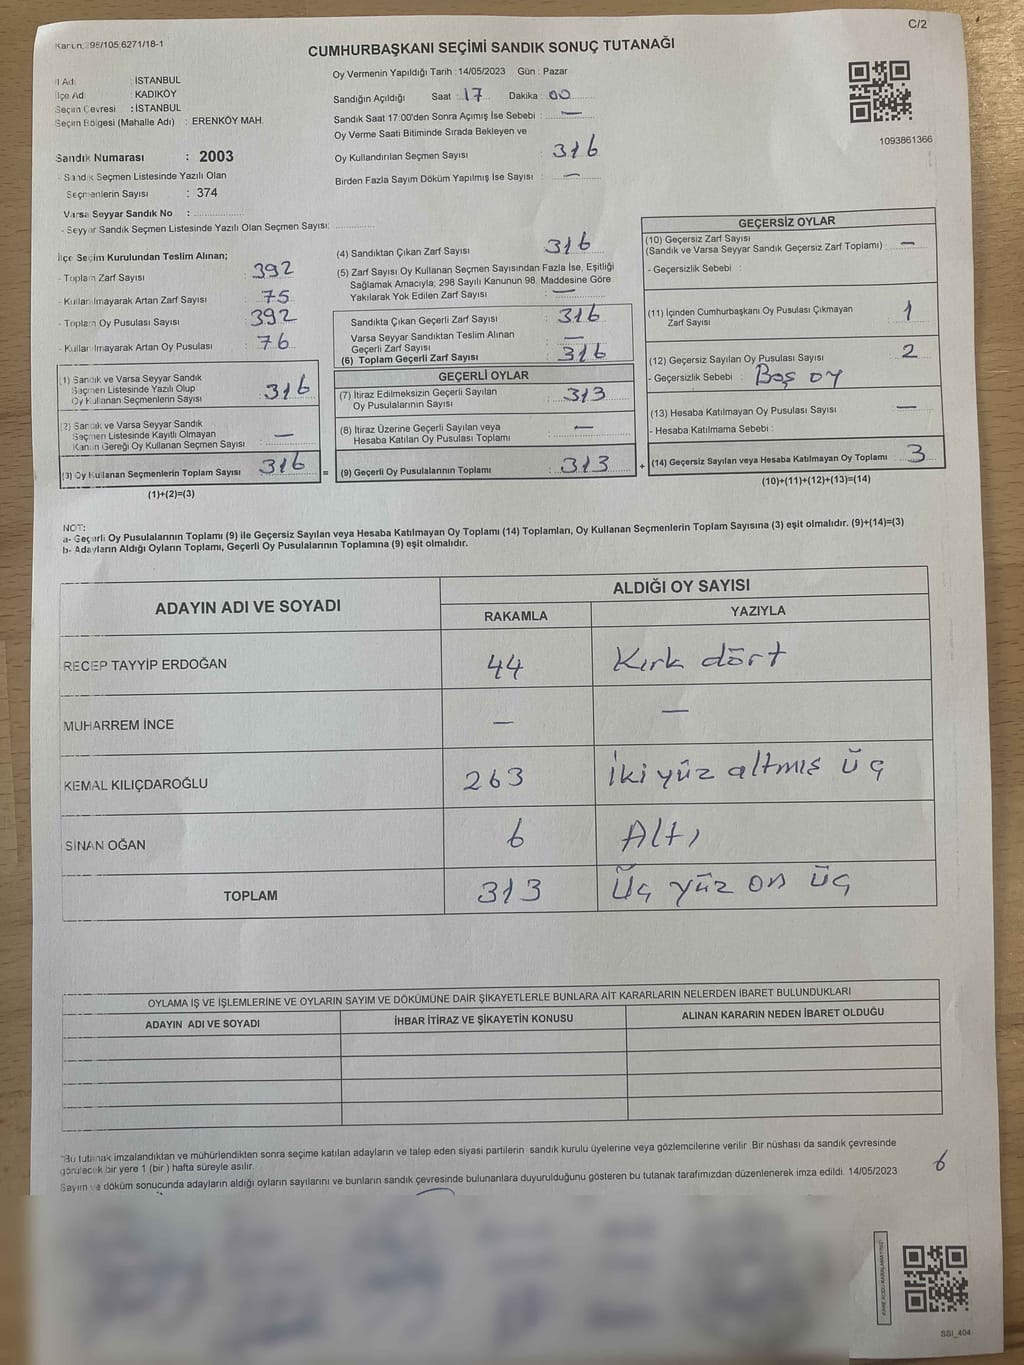 C/2
Kanun:298/105;6271/18-1
CUMHURBAŞKANI SEÇİMİ SANDIK SONUÇ TUTANAĞI
İl Adı : İSTANBUL
İlçe Adı : KADIKÖY
Seçim Çevresi : İSTANBUL
Seçim Bölgesi (Mahalle Adı) : ERENKÖY MAH.
Oy Vermenin Yapıldığı Tarih : 14/05/2023 Gün : Pazar
Sandığın Açıldığı Saat : 17 Dakika : 00
Sandık Saat 17:00'den Sonra Açımış İse Sebebi : —
Oy Verme Saati Bitiminde Sırada Bekleyen ve
Oy Kullandırılan Seçmen Sayısı : 316
Birden Fazla Sayım Döküm Yapılmış İse Sayısı : —
1093861366
Sandık Numarası : 2003
- Sandık Seçmen Listesinde Yazılı Olan
Seçmenlerin Sayısı : 374
Varsa Seyyar Sandık No :
- Seyyar Sandık Seçmen Listesinde Yazılı Olan Seçmen Sayısı:
İlçe Seçim Kurulundan Teslim Alınan;
- Toplam Zarf Sayısı : 392
- Kullanılmayarak Artan Zarf Sayısı : 75
- Toplam Oy Pusulası Sayısı : 392
- Kullanılmayarak Artan Oy Pusulası : 76
(1) Sandık ve Varsa Seyyar Sandık
Seçmen Listesinde Yazılı Olup
Oy Kullanan Seçmenlerin Sayısı : 316
(2) Sandık ve Varsa Seyyar Sandık
Seçmen Listesinde Kayıtlı Olmayan
Kanun Gereği Oy Kullanan Seçmen Sayısı : —
(3) Oy Kullanan Seçmenlerin Toplam Sayısı : 316
(1)+(2)=(3)
(4) Sandıktan Çıkan Zarf Sayısı : 316
(5) Zarf Sayısı Oy Kullanan Seçmen Sayısından Fazla İse, Eşitliği
Sağlamak Amacıyla; 298 Sayılı Kanunun 98. Maddesine Göre
Yakılarak Yok Edilen Zarf Sayısı : —
Sandıkta Çıkan Geçerli Zarf Sayısı : 316
Varsa Seyyar Sandıktan Teslim Alınan
Geçerli Zarf Sayısı : —
(6) Toplam Geçerli Zarf Sayısı : 316
GEÇERLİ OYLAR
(7) İtiraz Edilmeksizin Geçerli Sayılan
Oy Pusulalarının Sayısı : 313
(8) İtiraz Üzerine Geçerli Sayılan veya
Hesaba Katılan Oy Pusulası Toplamı : —
= (9) Geçerli Oy Pusulalarının Toplamı : 313
GEÇERSİZ OYLAR
(10) Geçersiz Zarf Sayısı
(Sandık ve Varsa Seyyar Sandık Geçersiz Zarf Toplamı) : —
- Geçersizlik Sebebi :
(11) İçinden Cumhurbaşkanı Oy Pusulası Çıkmayan
Zarf Sayısı : 1
(12) Geçersiz Sayılan Oy Pusulası Sayısı : 2
- Geçersizlik Sebebi : Boş oy
(13) Hesaba Katılmayan Oy Pusulası Sayısı : —
- Hesaba Katılmama Sebebi :
+ (14) Geçersiz Sayılan veya Hesaba Katılmayan Oy Toplamı : 3
(10)+(11)+(12)+(13)=(14)
NOT:
a- Geçerli Oy Pusulalarının Toplamı (9) ile Geçersiz Sayılan veya Hesaba Katılmayan Oy Toplamı (14) Toplamları, Oy Kullanan Seçmenlerin Toplam Sayısına (3) eşit olmalıdır. (9)+(14)=(3)
b- Adayların Aldığı Oyların Toplamı, Geçerli Oy Pusulalarının Toplamına (9) eşit olmalıdır.
ADAYIN ADI VE SOYADI
ALDIĞI OY SAYISI
RAKAMLA YAZIYLA
RECEP TAYYİP ERDOĞAN 44 Kırk dört
MUHARREM İNCE — —
KEMAL KILIÇDAROĞLU 263 İki yüz altmış üç
SİNAN OĞAN 6 Altı
TOPLAM 313 Üç yüz on üç
OYLAMA İŞ VE İŞLEMLERİNE VE OYLARIN SAYIM VE DÖKÜMÜNE DAİR ŞİKAYETLERLE BUNLARA AİT KARARLARIN NELERDEN İBARET BULUNDUKLARI
ADAYIN ADI VE SOYADI İHBAR İTİRAZ VE ŞİKAYETİN KONUSU ALINAN KARARIN NEDEN İBARET OLDUĞU
"Bu tutanak imzalandıktan ve mühürlendikten sonra seçime katılan adayların ve talep eden siyasi partilerin sandık kurulu üyelerine veya gözlemcilerine verilir. Bir nüshası da sandık çevresinde
görülecek bir yere 1 (bir) hafta süreyle asılır.
Sayım ve döküm sonucunda adayların aldığı oyların sayılarını ve bunların sandık çevresinde bulunanlara duyurulduğunu gösteren bu tutanak tarafımızdan düzenlenerek imza edildi. 14/05/2023
6
SSI_404